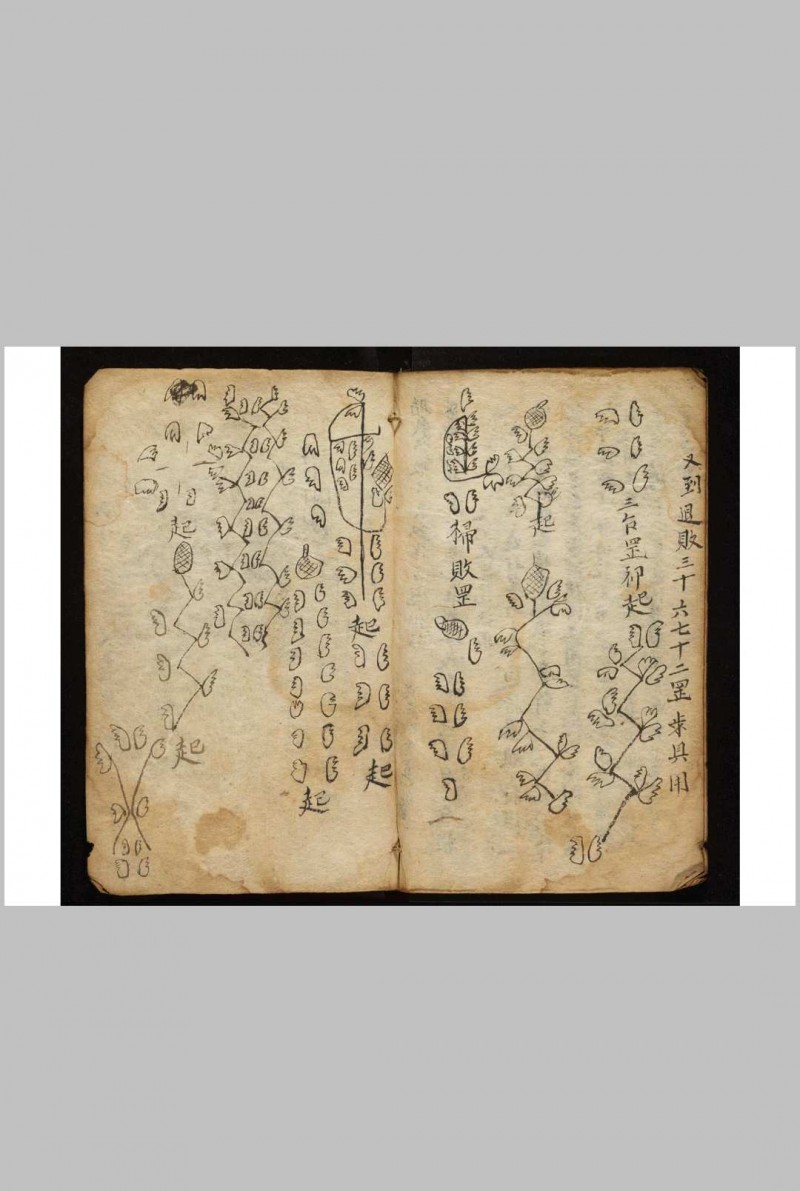 又到退敗三十六七十二罡步具用
三台罡祁起
起
掃敗罡
起
起
起
起
起